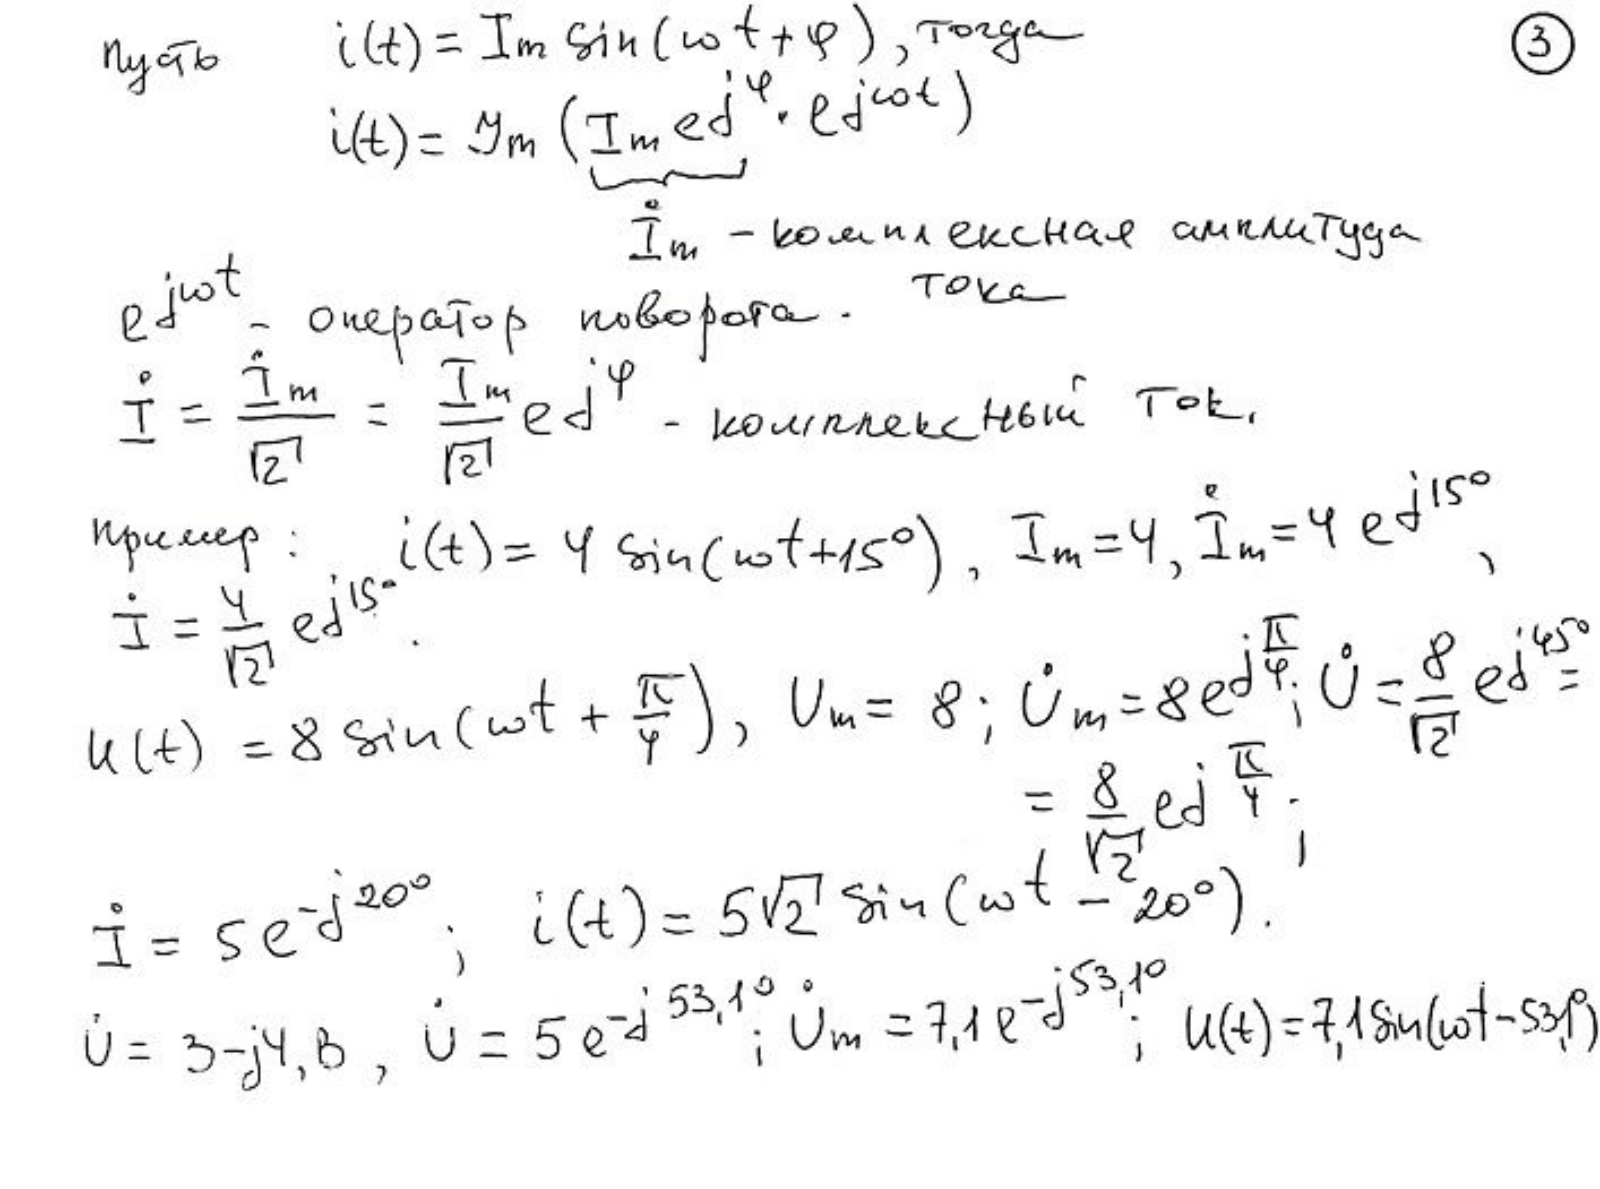 ③
Пусть i(t) = Im sin(ωt+φ), тогда
i(t) = Jm (Im e^{jφ} · e^{jωt})
İm – комплексная амплитуда
тока
e^{jωt} – оператор поворота.
İ = İm/√2 = Im/√2 e^{jφ} – комплексный ток.
Пример: i(t) = 4 sin(ωt+15°), Im=4, İm=4 e^{j15°},
İ = 4/√2 e^{j15°}.
u(t) = 8 sin(ωt + π/4), Um = 8; U̇m = 8e^{jπ/4}; U̇ = 8/√2 e^{j45°} =
= 8/√2 e^{jπ/4};
İ = 5e^{-j20°}; i(t) = 5√2 sin(ωt – 20°).
U̇ = 3-j4, В, U̇ = 5e^{-j53,1°}; U̇m = 7,1e^{-j53,1°}; u(t)=7,1sin(ωt-53,1°)